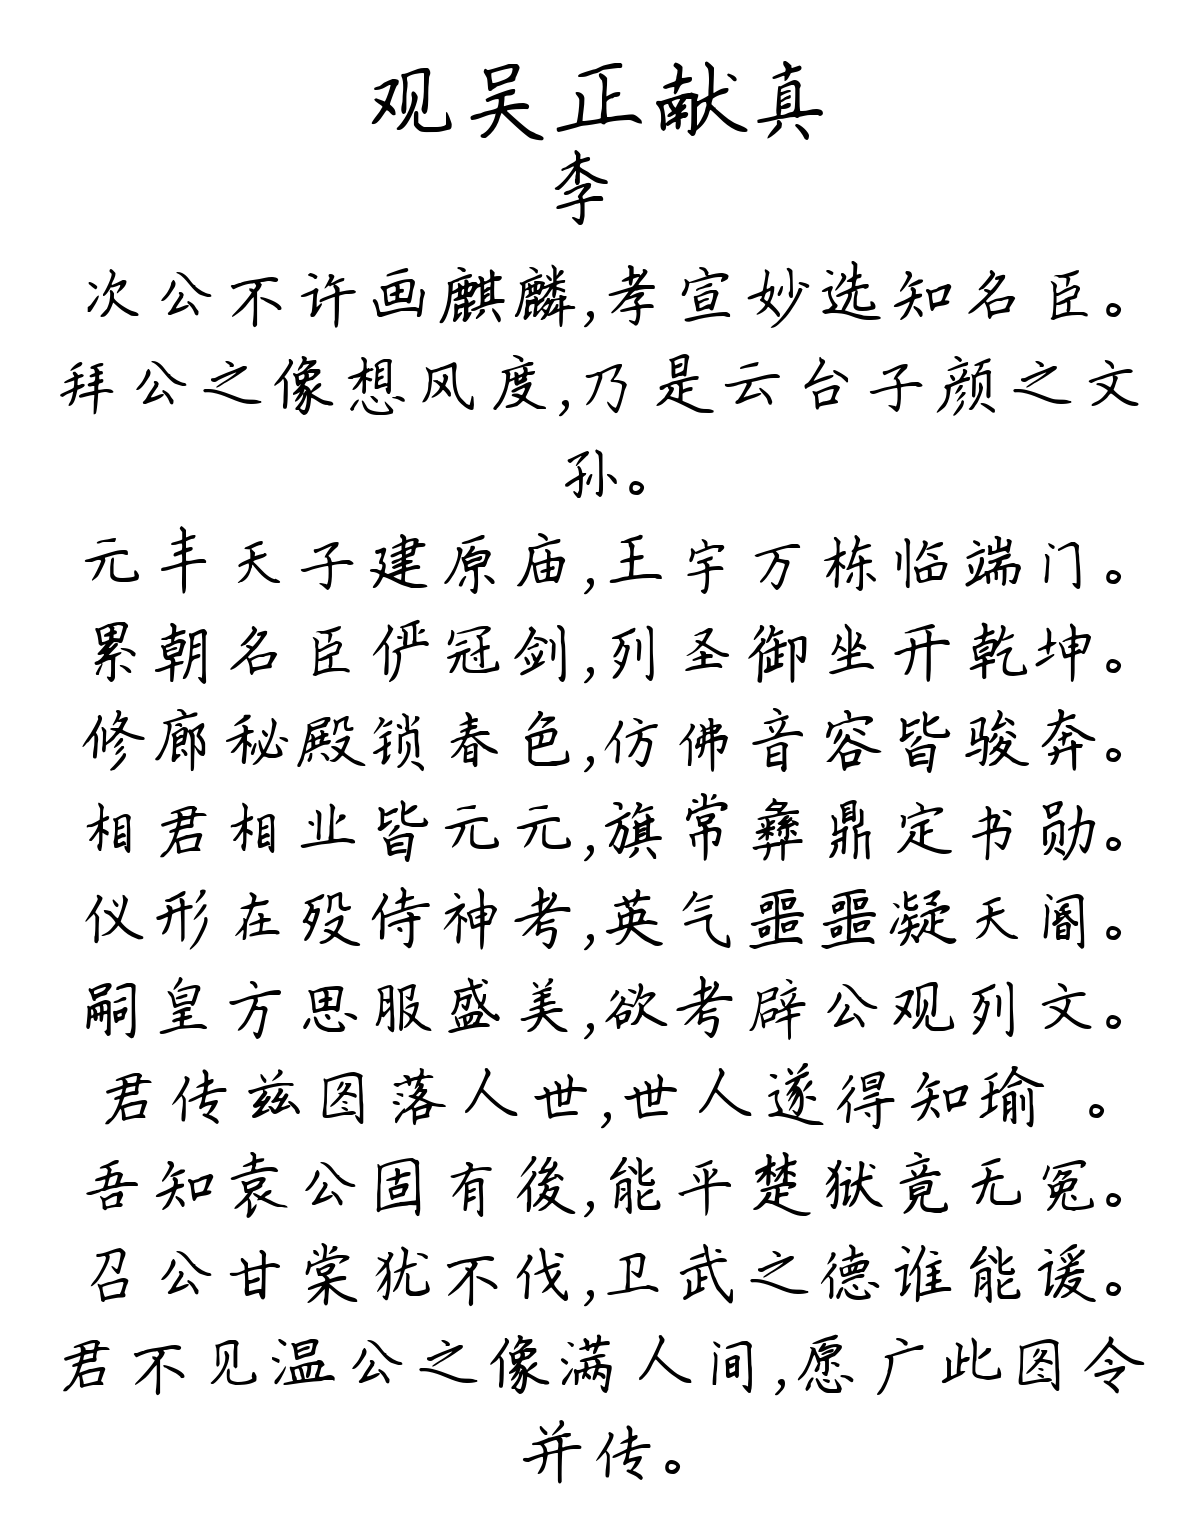 观吴正献真
李
次公不许画麒麟,孝宣妙选知名臣。
拜公之像想风度,乃是云台子颜之文
孙。
元丰天子建原庙,王宇万栋临端门。
累朝名臣俨冠剑,列圣御坐开乾坤。
修廊秘殿锁春色,仿佛音容皆骏奔。
相君相业皆元元,旗常彝鼎定书勋。
仪形在殁侍神考,英气噩噩凝天阍。
嗣皇方思服盛美,欲考辟公观列文。
君传兹图落人世,世人遂得知瑜 。
吾知袁公固有後,能平楚狱竟无冤。
召公甘棠犹不伐,卫武之德谁能谖。
君不见温公之像满人间,愿广此图令
并传。